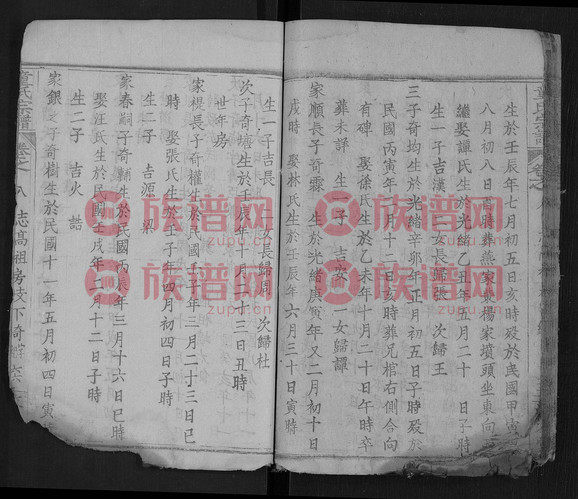 生於壬辰年七月初五日亥時歿於民國甲寅
八月初八日酉時葬燕家東楊家墳頭坐東向
繼娶譚氏生於光緒乙丑年五月二十日子時
生一子吉漢 二女長歸張 次歸王
三子奇均生於光緒辛卯年正月初五日子時歿於
民國丙寅年八月十二日亥時葬兄棺右側合向
有碑 娶徐氏生於乙未年十月二十日午時卒
葬未詳 生一子 吉安 一女歸譚
家順長子奇霖 生於光緒庚寅年又二月初十日
戌時 娶林氏生於壬辰年六月三十日寅時
生一子吉長 一女長歸周 次歸杜
次子奇 生於壬辰年十月二十三日丑時
世年房
家椇長子奇權生於民國壬子年三月二十三日巳
時 娶張氏生於壬子年四月初四日子時
生二子 吉源
家春嗣子奇輔生於民國丙辰年三月十六日巳時
娶汪氏生於民國壬戌年二月十二日子時
生二子 吉火 吉
家銀之子奇樹生於民國十一年五月初四日寅時
童氏宗譜 卷之八 志高祖房枝下奇
族谱网
zupu.cn
族谱网
zupu.cn
族谱网
zupu.cn
族谱网
zupu.cn